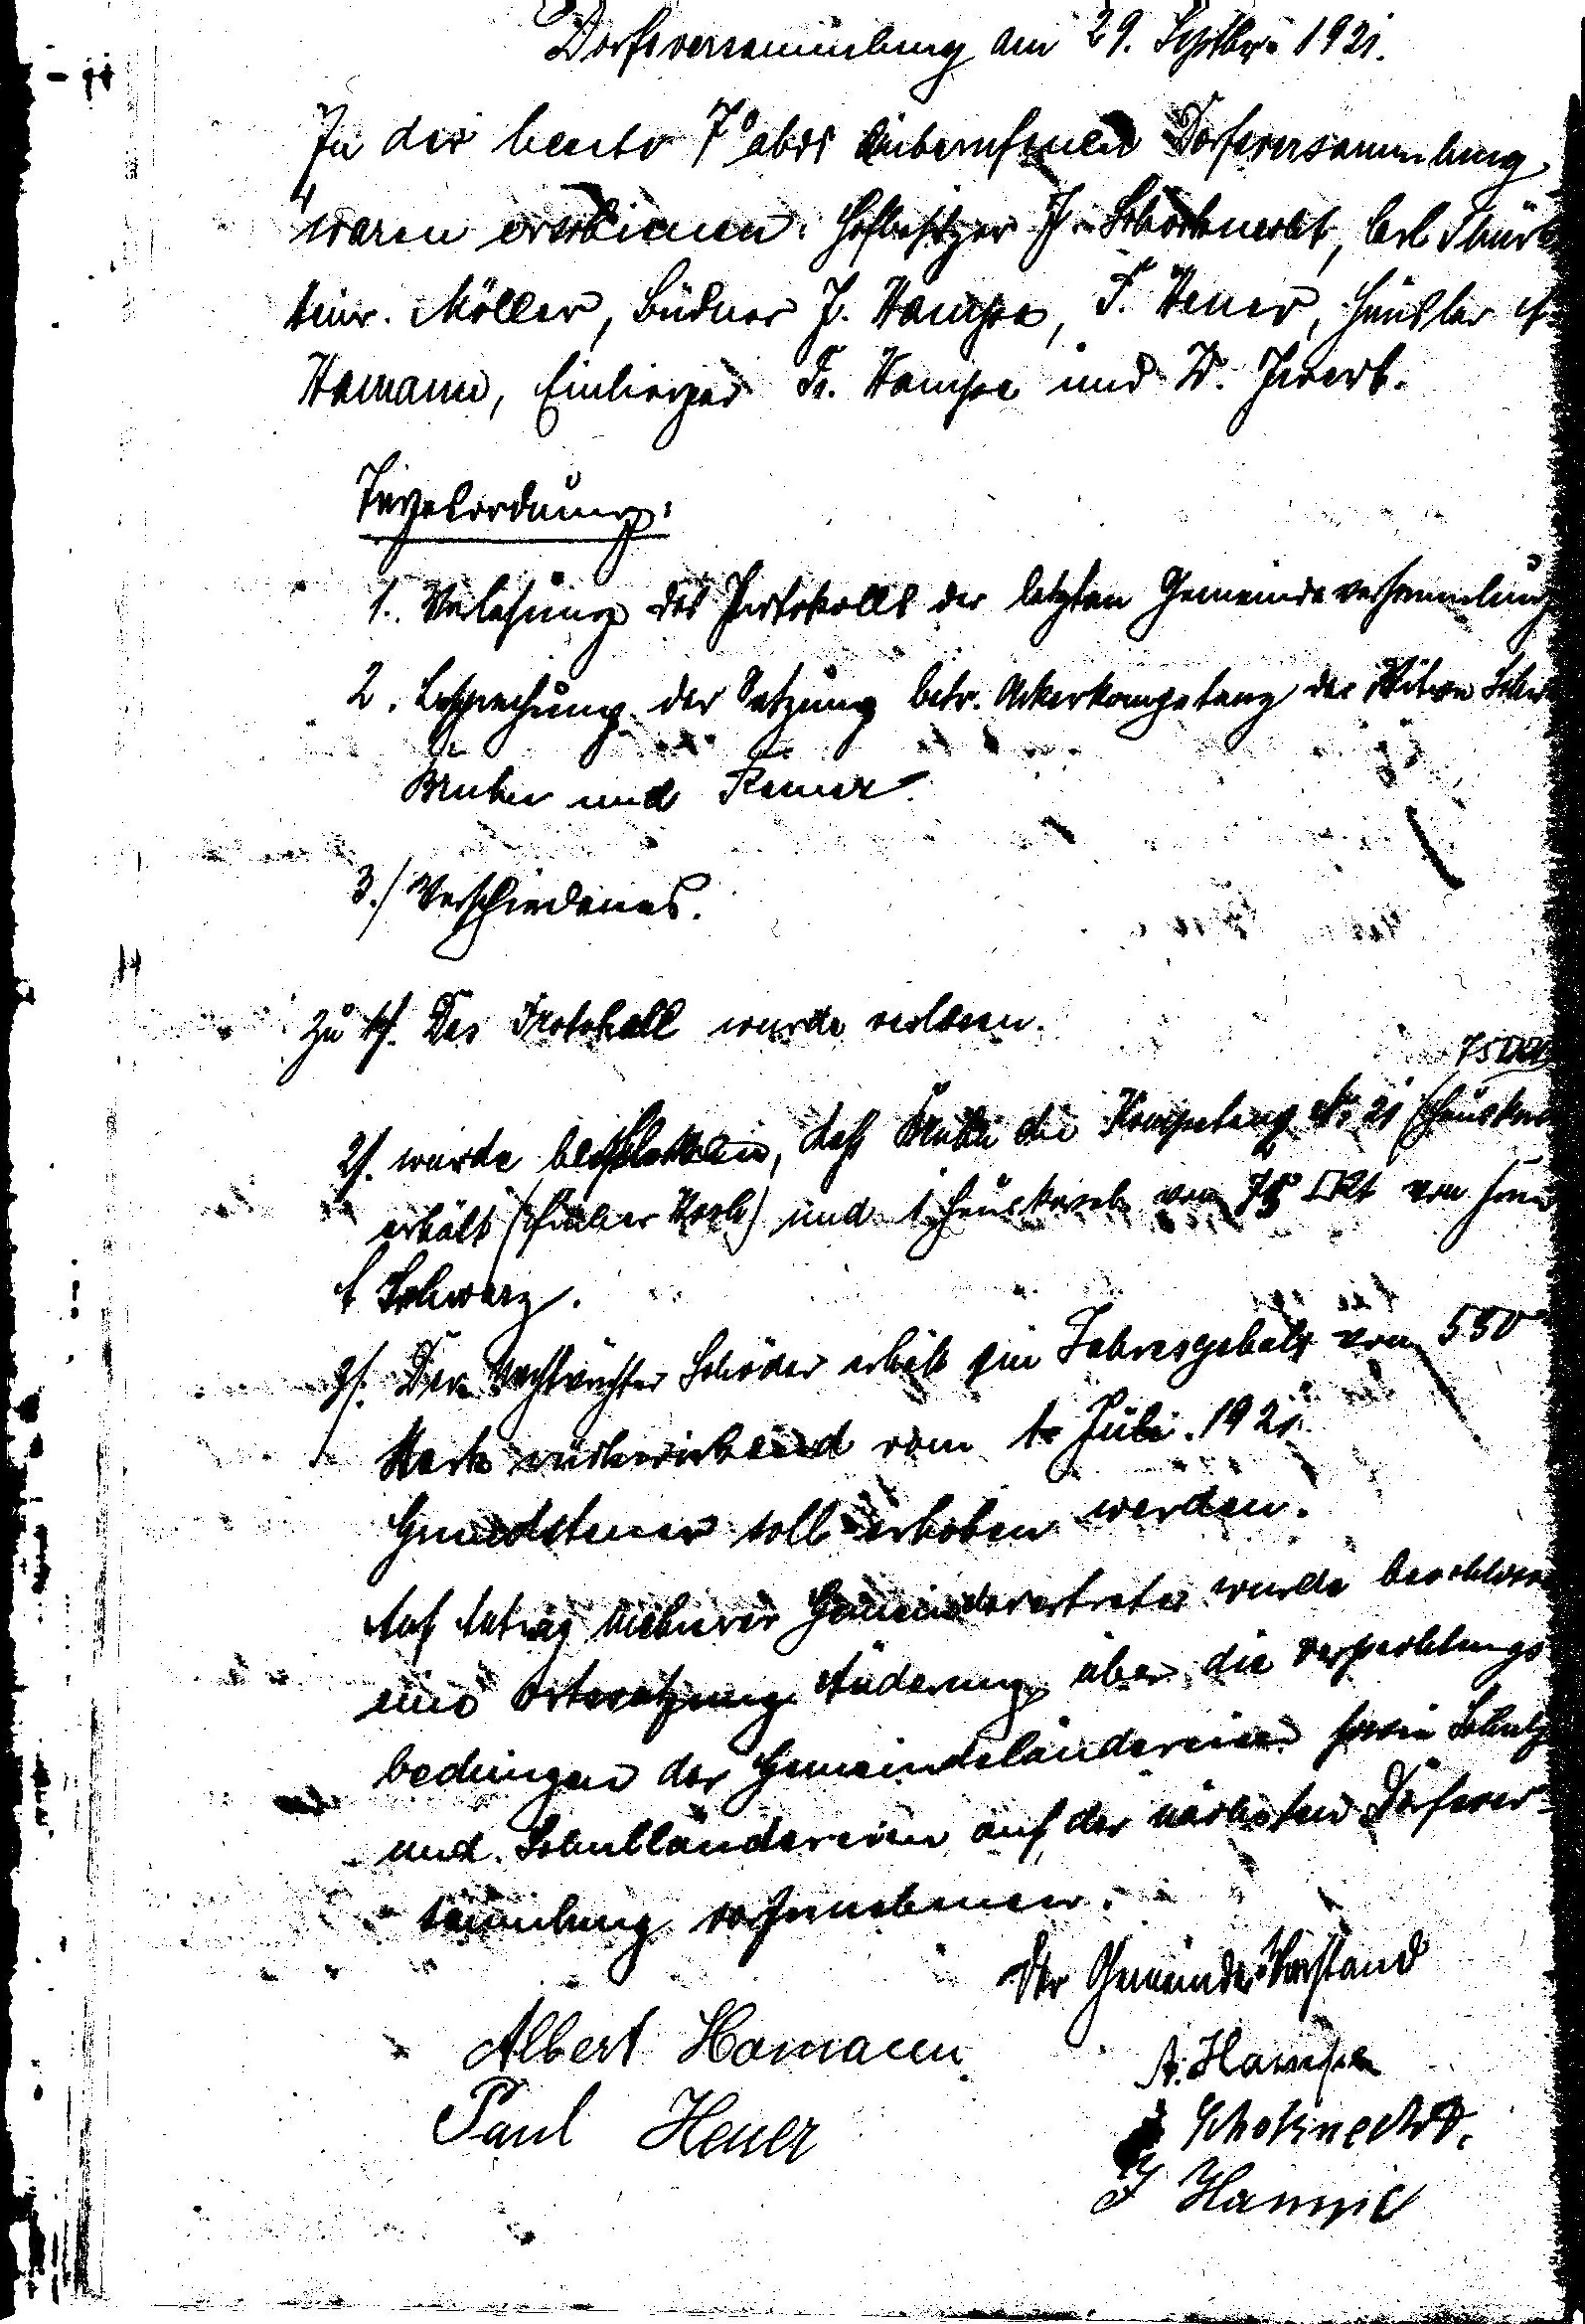 Dorfsversammlung am 29. Septbr. 1921.
In der heute 7° abds einberufenen Dorfsversammlung
waren erschienen: Hofbesitzer J. Schoknecht,
Heinr. Möller, Büdner J. Hampe, P. Heuer, Häusler A.
Hamann, Einlieger Fr. Hampe und W.
Tagesordnung:
1. Verlesung des Protokolls der letzten Gemeindeversammlung
2. Besprechung der Satzung betr. Ackerkompetenz der Witwe
und
3./ Verschiedenes.
Zu 1/. Das Protokoll wurde verlesen.
75
2/. wurde beschlossen, daß die Kompetenz No 21
erhält (früher Koch) und 1 von 75 □Rt von
Schwarz.
3/. Der Nachtwächter Schöder erhält ein Jahresgehalt von 550
Mark rückwirkend vom 1. Juli 1921.
Grundsteuer soll erhoben werden.
Auf Antrag mehrerer Gemeindevertreter wurde beschlossen
eine Ortssatzung Änderung über die Verpachtungs
bedingen der Gemeindeländereien sowie Schulz
und Schulländereien auf der nächsten Dorfsver-
sammlung vorzunehmen.
Der Gemeinde Vorstand
Albert Hamann A. Hampe
Paul Heuer Schoknecht.
J Hampe